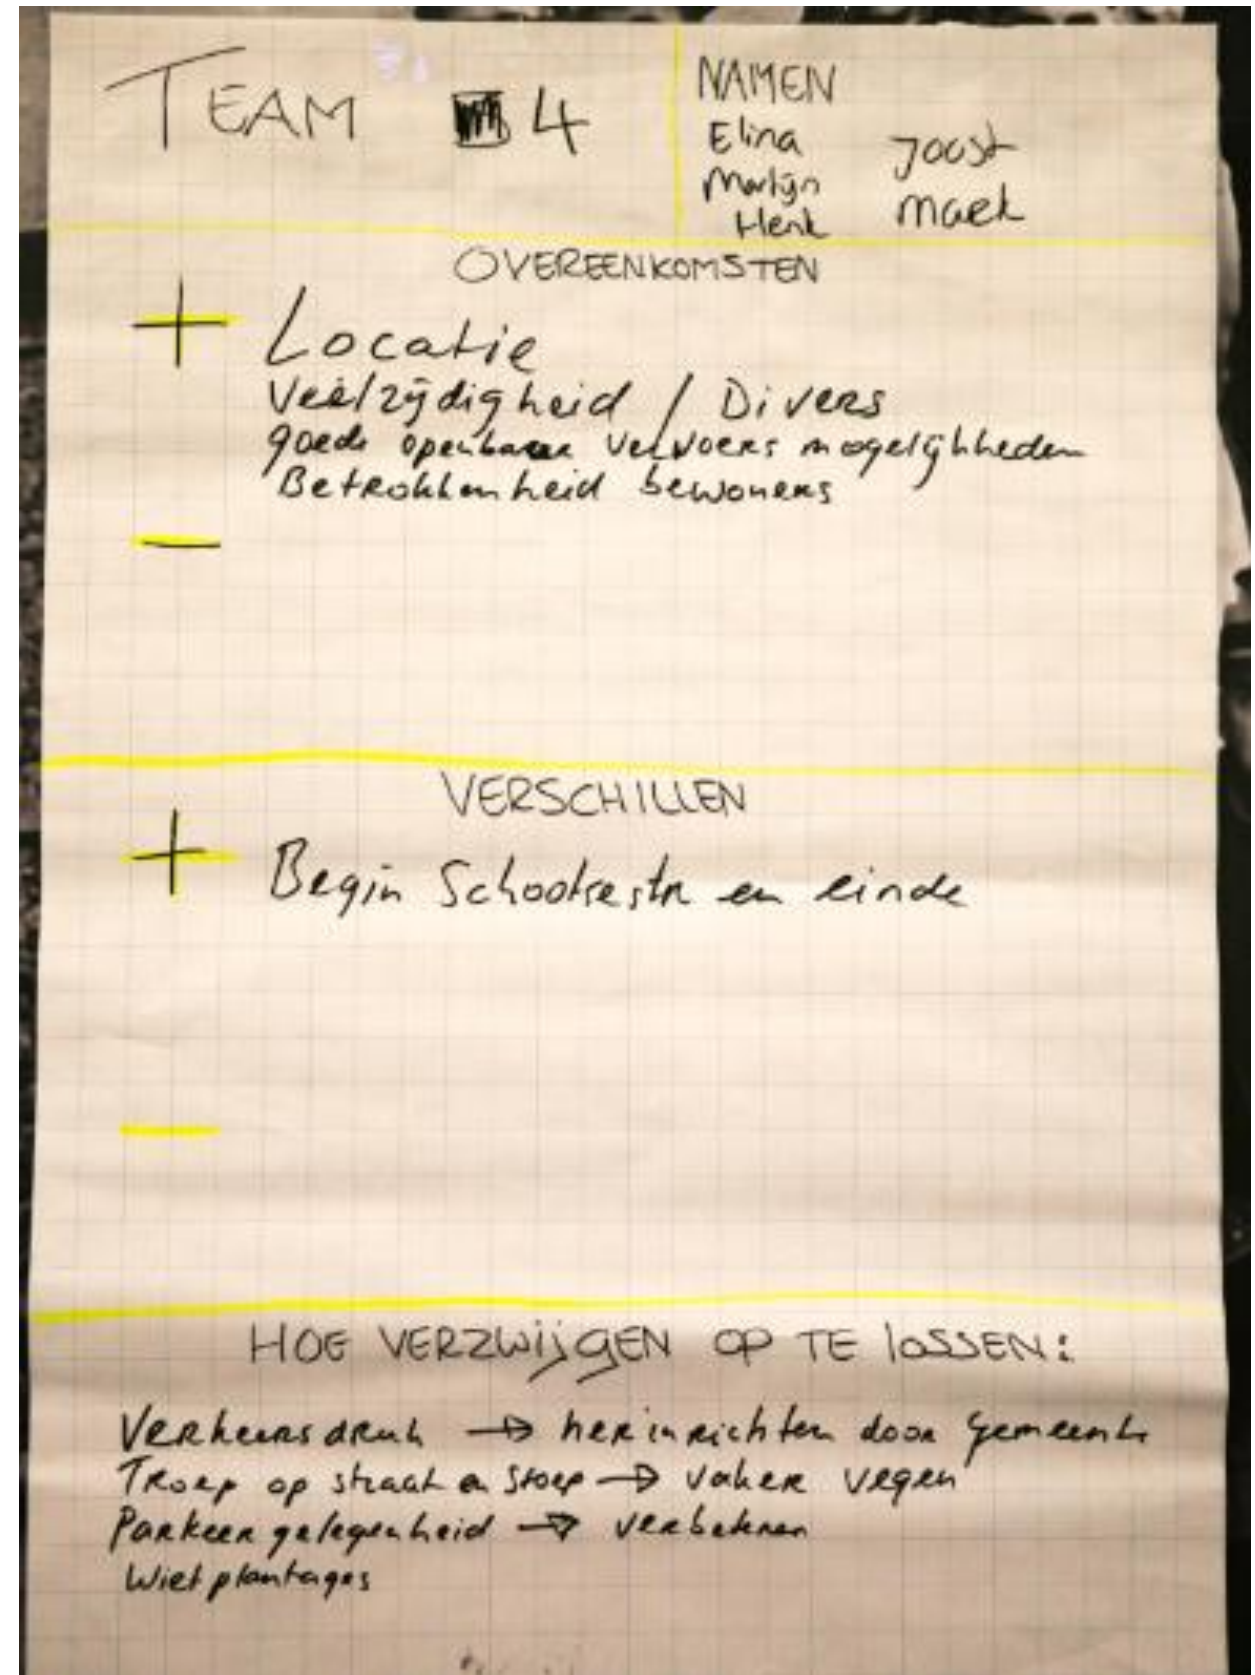 TEAM 4
NAMEN
Elina Joost
Martijn Mark
Henk
OVEREENKOMSTEN
+ Locatie
Veelzijdigheid / Divers
goede openbaar vervoers mogelijkheden
Betrokkenheid bewoners
-
VERSCHILLEN
+ Begin Schootsestr en einde
-
HOE VERZWIJGEN OP TE LOSSEN:
Verkeersdruk → herinrichten door gemeente
Troep op straat en stoep → vaker vegen
Parkeergelegenheid → verbeteren
Wietplantages